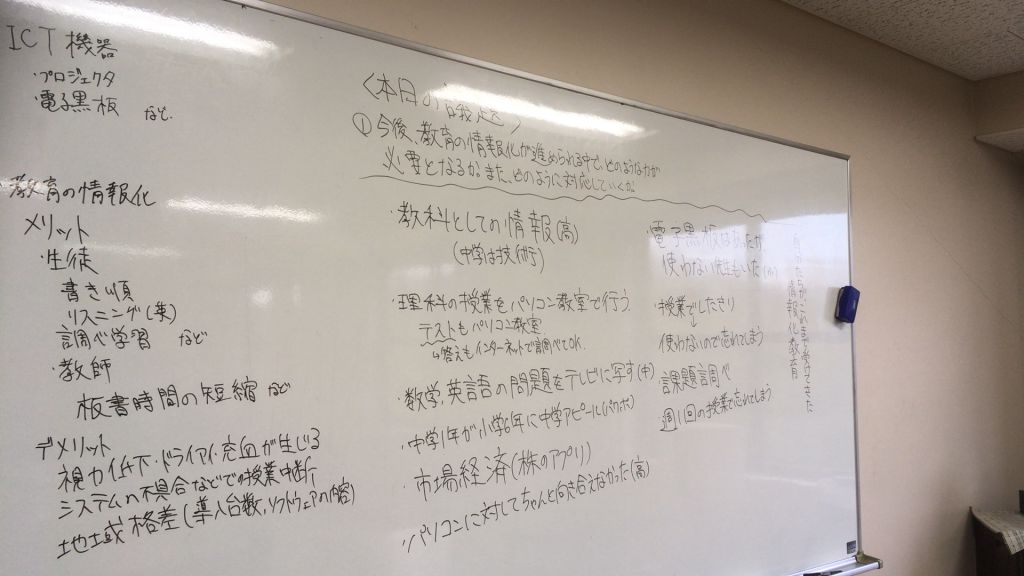 ICT機器
・プロジェクタ
・電子黒板 など.
・教育の情報化
メリット
・生徒
書き順
リスニング(英)
調べ学習 など
・教師
板書時間の短縮 など
デメリット
視力低下・ドライアイ・充血が生じる
システムの不具合などでの授業中断
地域格差(導入台数,ソフトウェアの内容)
<本日の議題>
①今後、教育の情報化が進められる中で、どのような力が
必要となるか。また、どのように対応していくか
・教科としての情報(高)
(中学は技術)
・理科の授業をパソコン教室で行う
テストもパソコン教室
↳答えもインターネットで調べてOK.
・数学,英語の問題をテレビに写す(中)
・中学1年が小学6年に中学アピール(パワポ)
・市場経済(株のアプリ)
・パソコンに対してちゃんと向き合えなかった(高)
・電子黒板はあったが
使わない先生もいた(小)
・授業でしたきり
↓
使わないので忘れてしまう
・課題調べ
週1回の授業で忘れてしまう
自分たちがこれまで受けてきた
情報化教育